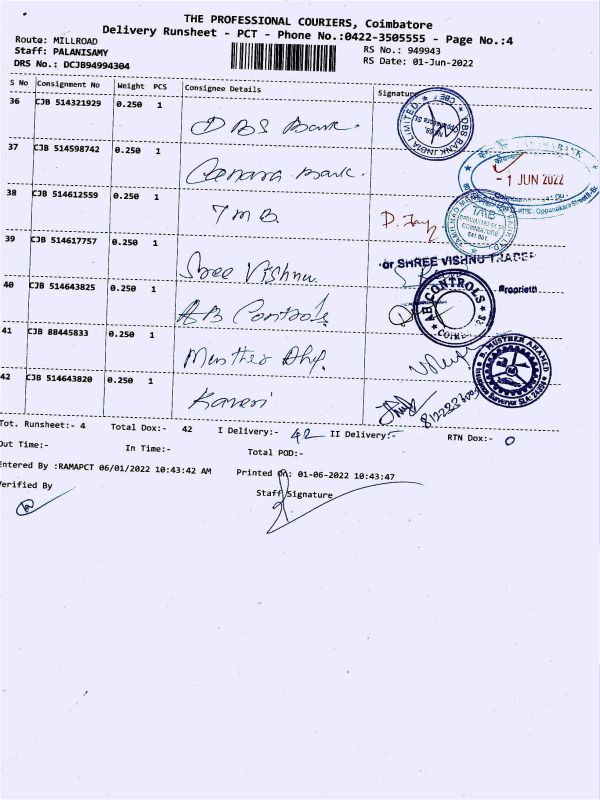 THE PROFESSIONAL COURIERS, Coimbatore
Delivery Runsheet - PCT - Phone No.:0422-3505555 - Page No.:4
Route: MILLROAD RS No.: 949943
Staff: PALANISAMY RS Date: 01-Jun-2022
DRS No.: DCJB94994304
S No Consignment No Weight PCS Consignee Details Signature
36 CJB 514321929 0.250 1 DBS Bank
DBS BANK INDIA LIMITED
37 CJB 514598742 0.250 1 Canara Bank.
- 1 JUN 2022
38 CJB 514612559 0.250 1 TMB.
TMB
COIMBATORE
641 001
39 CJB 514617757 0.250 1 Shree Vishnu.
or SHREE VISHNU TRADER
40 CJB 514643825 0.250 1 AB Controls
AB CONTROLS
41 CJB 88445833 0.250 1
42 CJB 514643820 0.250 1 Kaveri
Tot. Runsheet:- 4 Total Dox:- 42 I Delivery:- 42 II Delivery:- RTN Dox:- 0
Out Time:- In Time:- Total POD:-
Entered By :RAMAPCT 06/01/2022 10:43:42 AM Printed On: 01-06-2022 10:43:47
Verified By Staff Signature